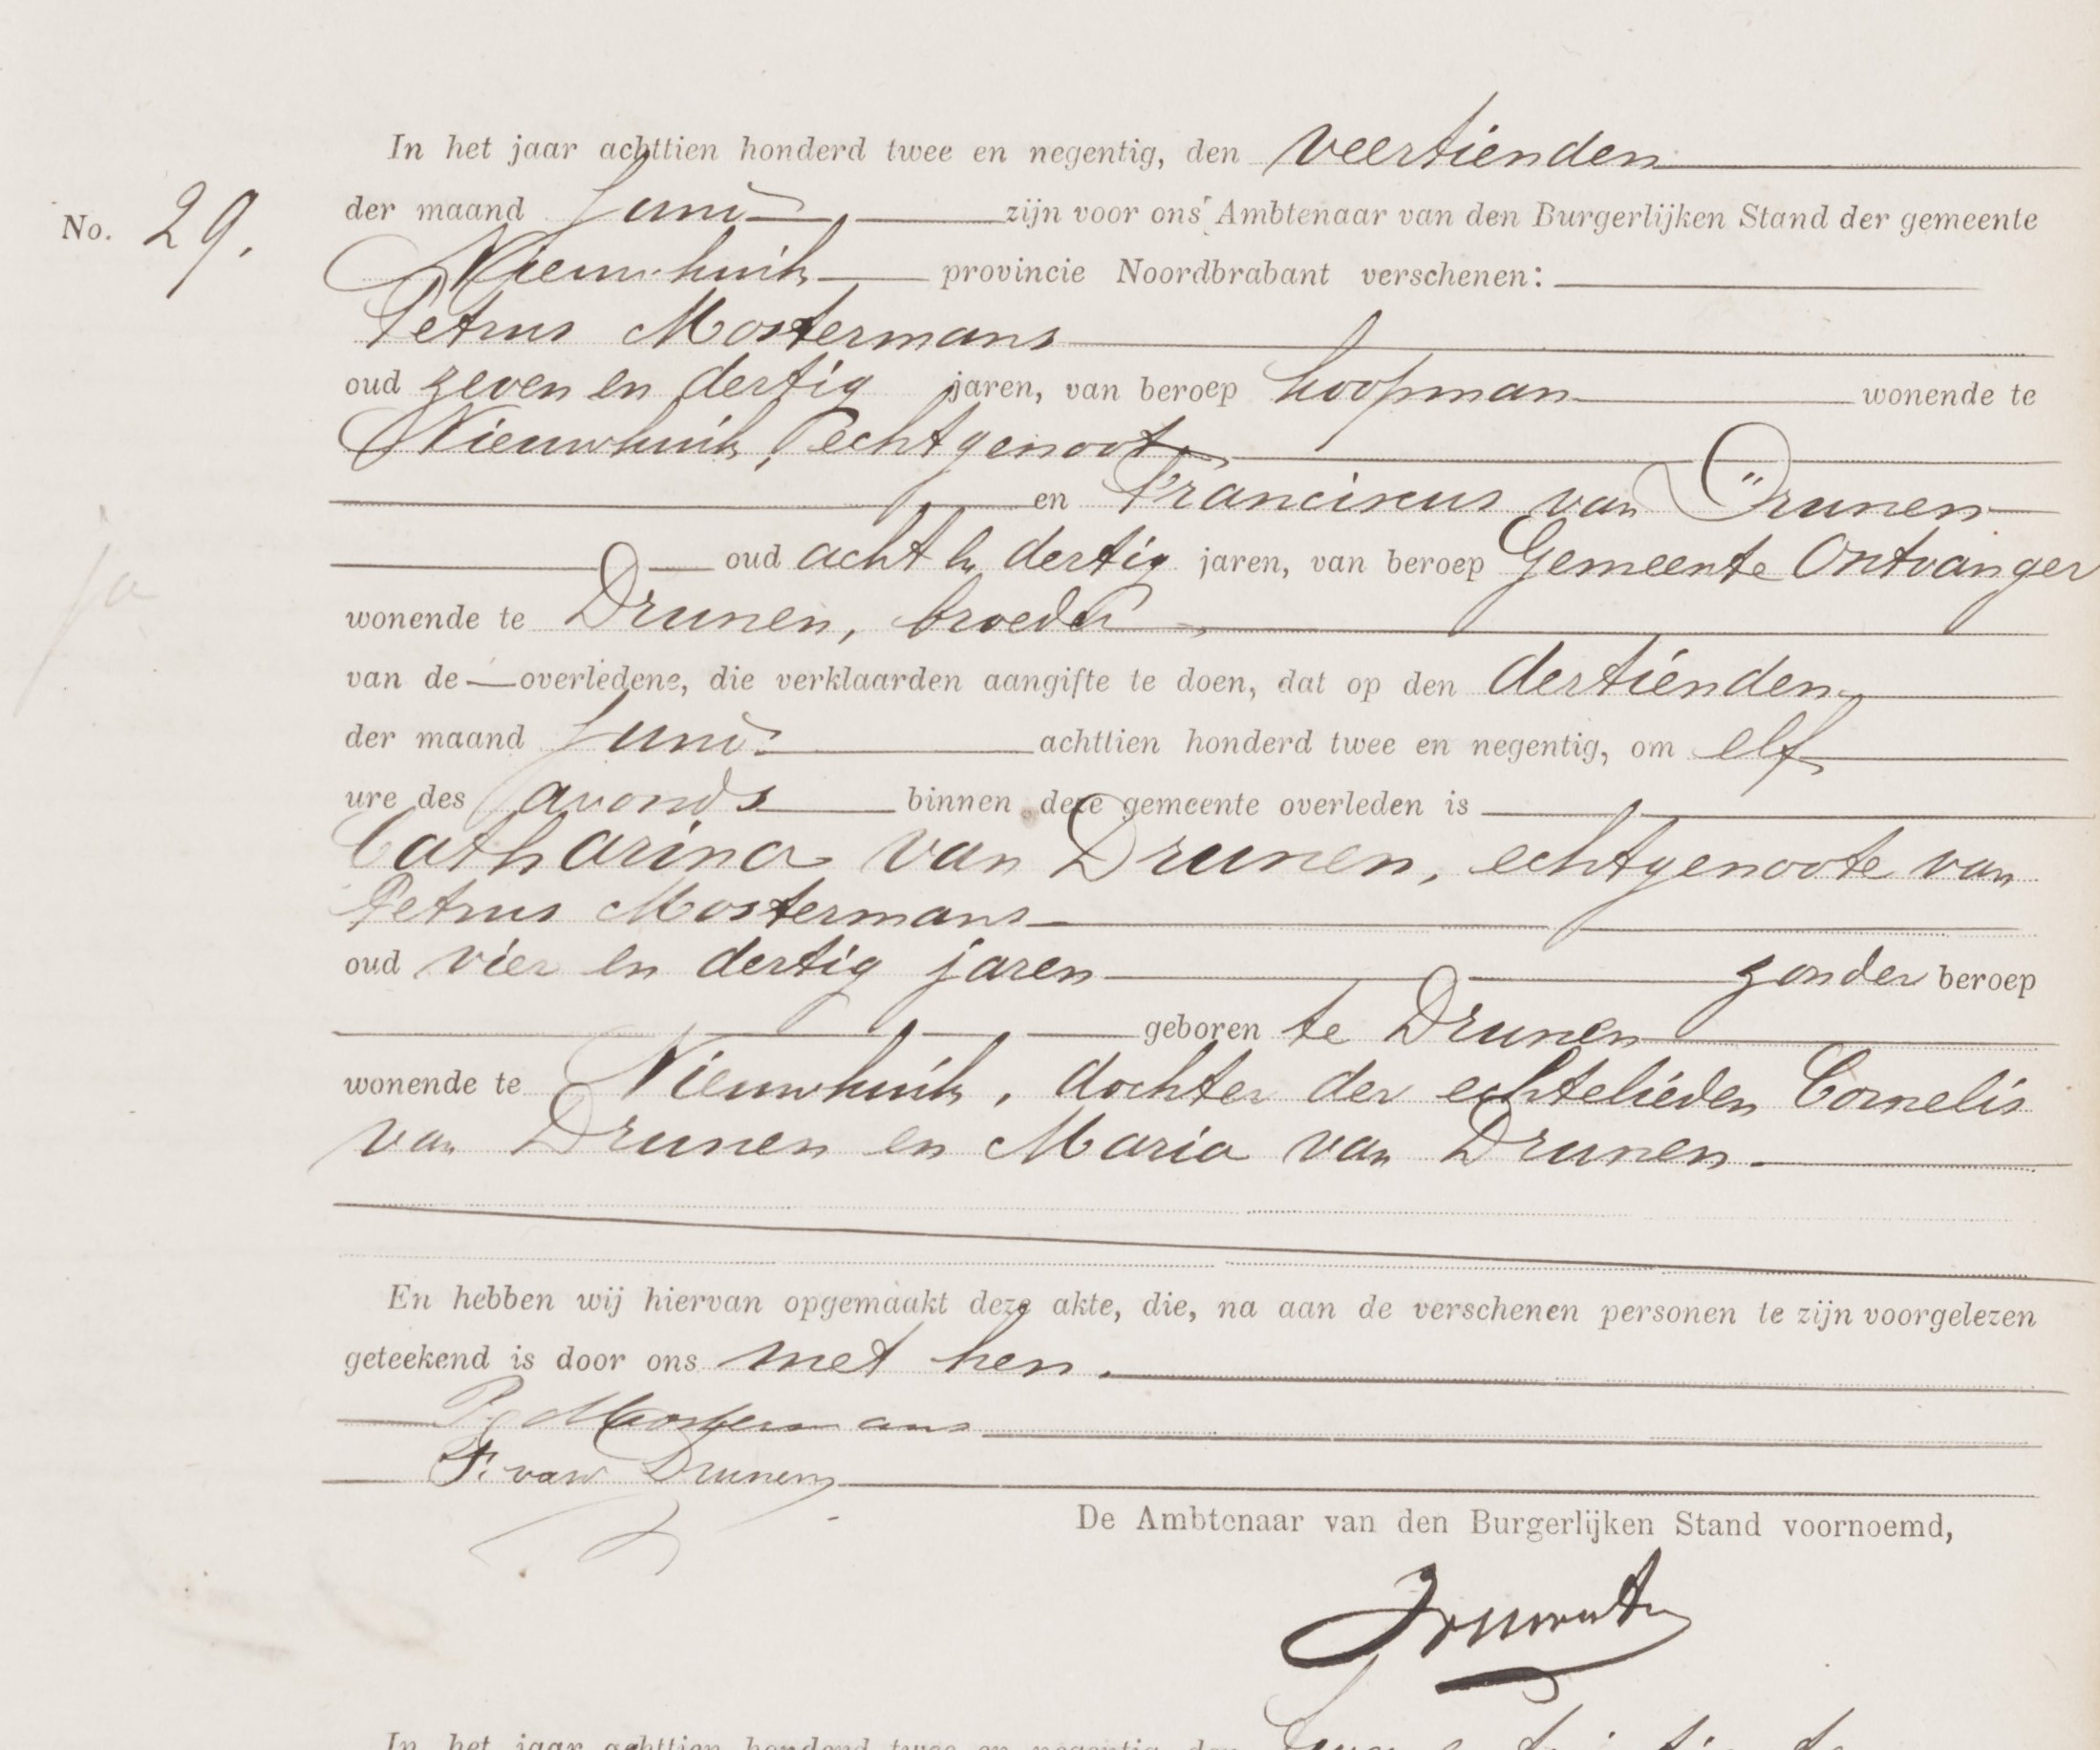 In het jaar achttien honderd twee en negentig, den veertienden
No. 29.
der maand Juni zijn voor ons Ambtenaar van den Burgerlijken Stand der gemeente
Nieuwkuik provincie Noordbrabant verschenen:
Petrus Mostermans
oud zeven en dertig jaren, van beroep koopman wonende te
Nieuwkuik, echtgenoot,
en Franciscus van Drunen
oud acht en dertig jaren, van beroep Gemeente Ontvanger
ja
wonende te Drunen, broeder
van de overledene, die verklaarden aangifte te doen, dat op den dertienden
der maand Juni achttien honderd twee en negentig, om elf
ure des avonds binnen deze gemeente overleden is
Catharina van Drunen, echtgenoote van
Petrus Mostermans
oud vier en dertig jaren zonder beroep
geboren te Drunen
wonende te Nieuwkuik, dochter der echtelieden Cornelis
van Drunen en Maria van Drunen.
En hebben wij hiervan opgemaakt deze akte, die, na aan de verschenen personen te zijn voorgelezen
geteekend is door ons met hen.
P. Mostermans
F. van Drunen
De Ambtenaar van den Burgerlijken Stand voornoemd,
In het jaar achttien honderd twee en negentig den